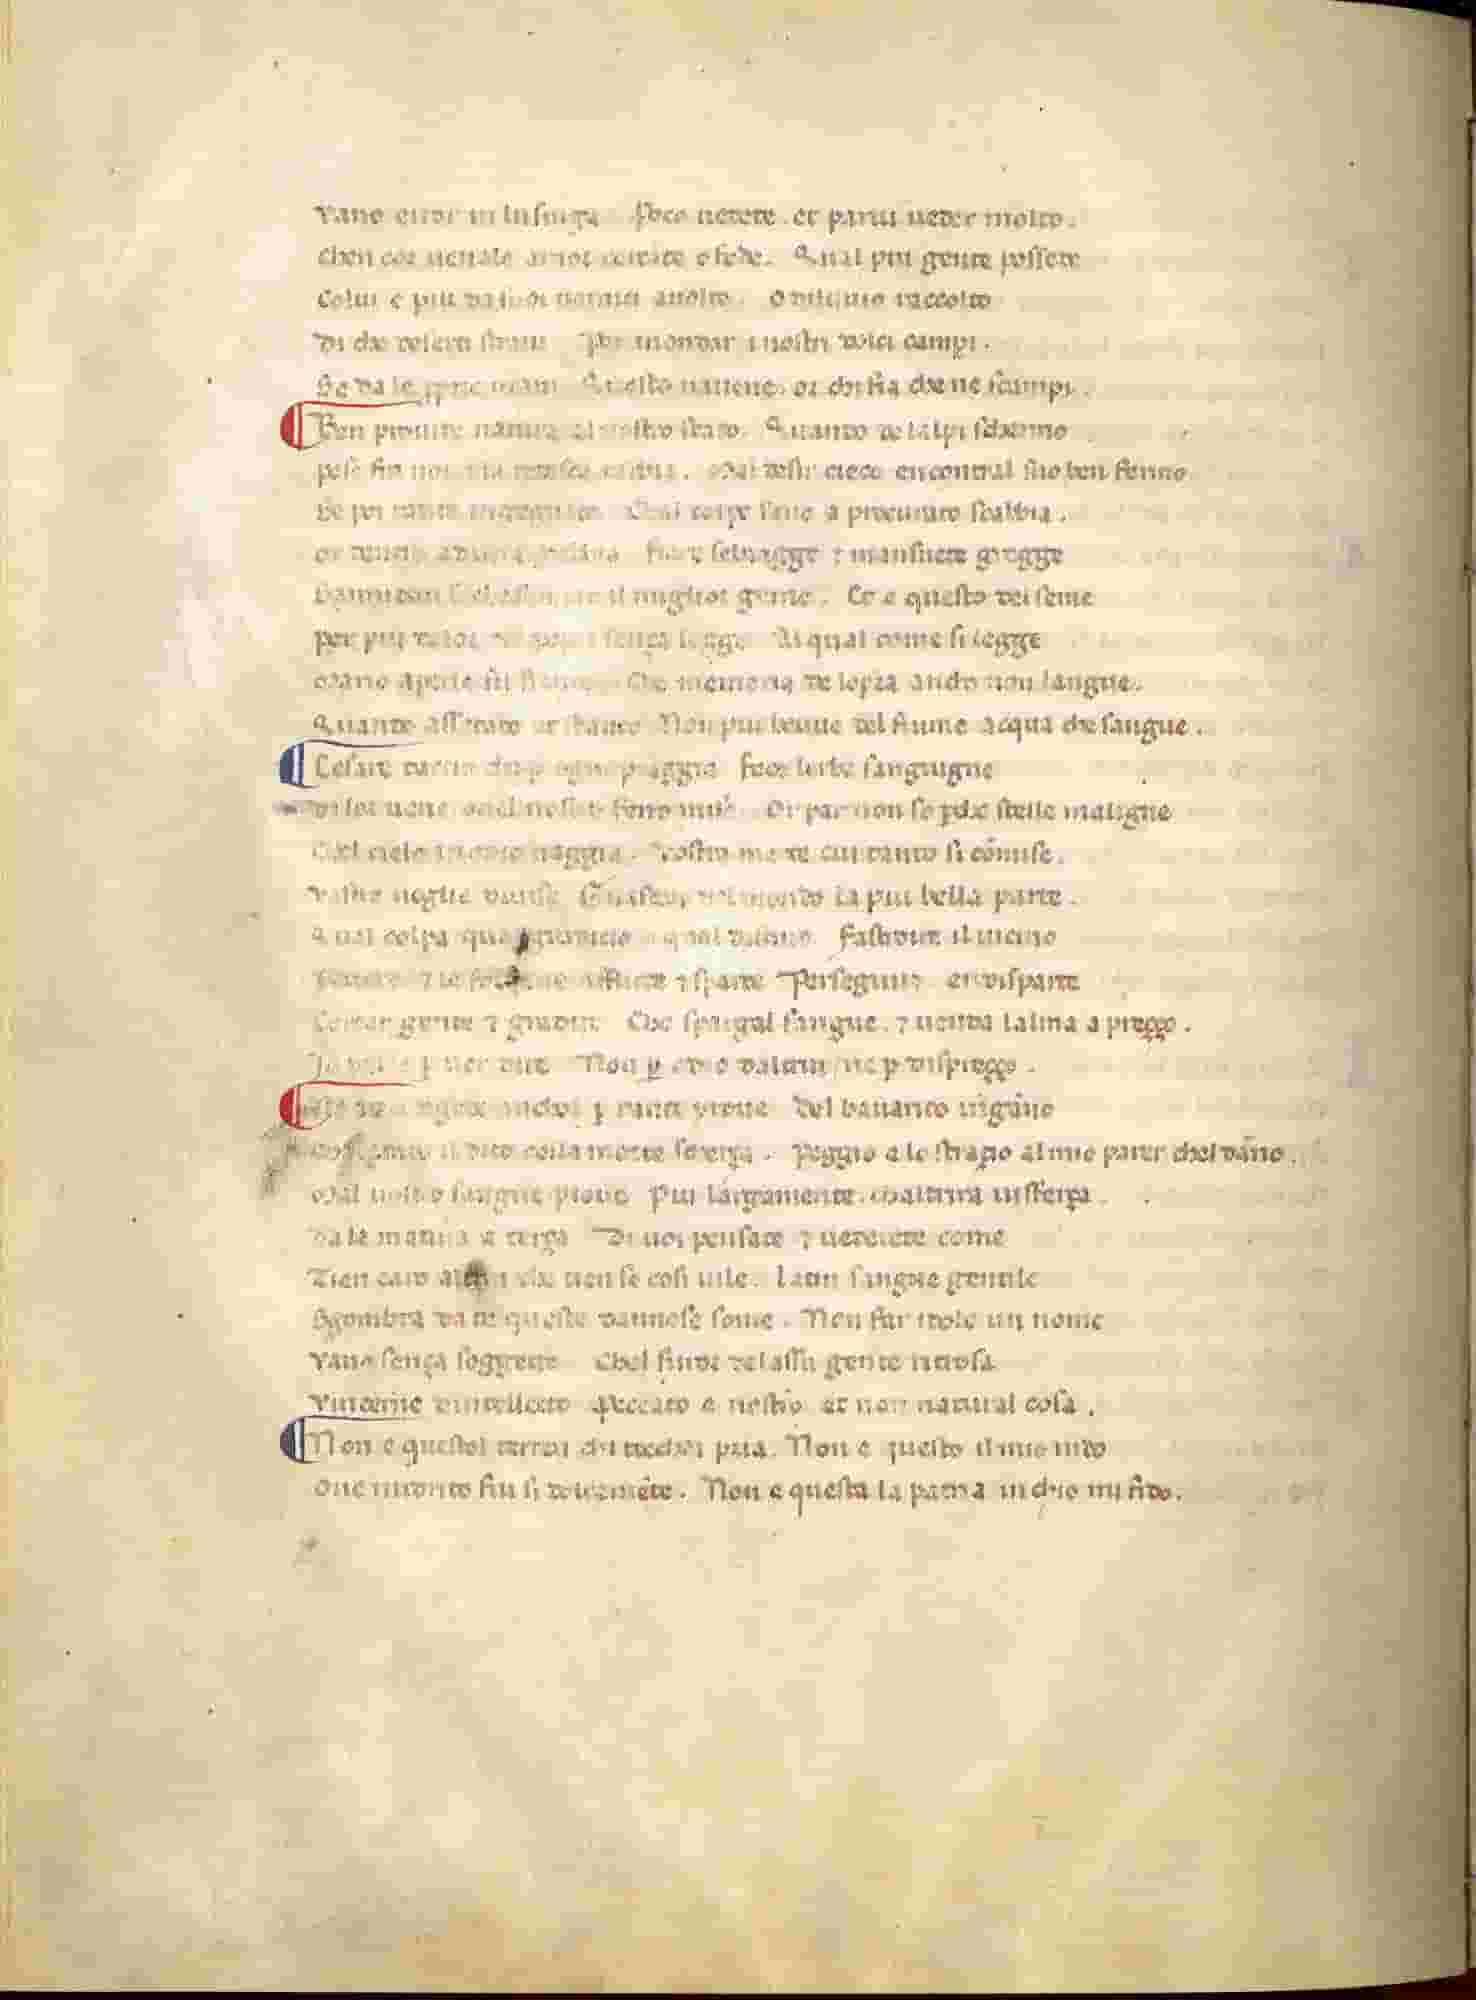 Vano error ui lusinga Poco uedete. et parui ueder molto.
Chen cor uenale amor cercate o fede. Qual piu gente possede
Colui e piu da suoi nemici auolto. O diluuio raccolto
Di che deserti strani Per inondar i nostri dolci campi.
Se da le ppne mani Questo nauene. or chi fia che ne scampi.
Ben prouide natura al nostro stato. Quando de lalpi schermo
pose fra noi la tedesca rabbia. Mal desir cieco encontral suo ben fermo
Se poi tanto ingegnato Chal corpo sano a procurato scabbia.
or dentro ad una gabbia Fiere seluagge ⁊ mansuete gregge
Sannidan si che sempre il miglior geme. Et e questo del seme
per piu dolor del popol sença legge Al qual come si legge
Mario aperse si il fianco Che memoria de lopra ancho non langue.
Quando assetato et stanco Non piu beuue del fiume acqua che sangue.
Cesare taccio che p ogni piaggia Fece lerbe sanguigne
Di lor uene oue l nostro ferro mise. Or par non so p che stelle maligne
Chel cielo in odio naggia. Vostra mercede cui tanto si cōmise.
Vostre uoglie diuise Guastan del mondo la piu bella parte.
Qual colpa qual giudicio o qual destino Fastidire il uicino
Pouero. ⁊ le fortune afflicte ⁊ sparte Perseguire. en disparte
Cercar gente ⁊ gradire Che spargal sangue. ⁊ uenda lalma a preçço.
Io parlo p uer dire Non p odio daltrui. ne p dispreçço.
Ne uaccorgete anchor p tante proue Del bauarico ingāno
Chalçando il dito colla morte scherça. Peggio e lo straçio al mio parer chel dāno.
Mal uostro sangue pioue Piu largamente. chaltrira uisferça.
Da la matina a terça Di uoi pensate ⁊ uederete come
Tien caro altrui che tien se cosi uile. Latin sangue gentile
Sgombra da te queste dannose some. Non far idolo un nome
Vano sença soggetto Chel furor de lassu gente ritrosa
Vincerne dintellecto Peccato e nostro et non natural cosa.
Non e questol terren chi toccha pria. Non e questo il mio nido
Oue nudrito fui si dolcemēte. Non e questa la patria in chio mi fido.